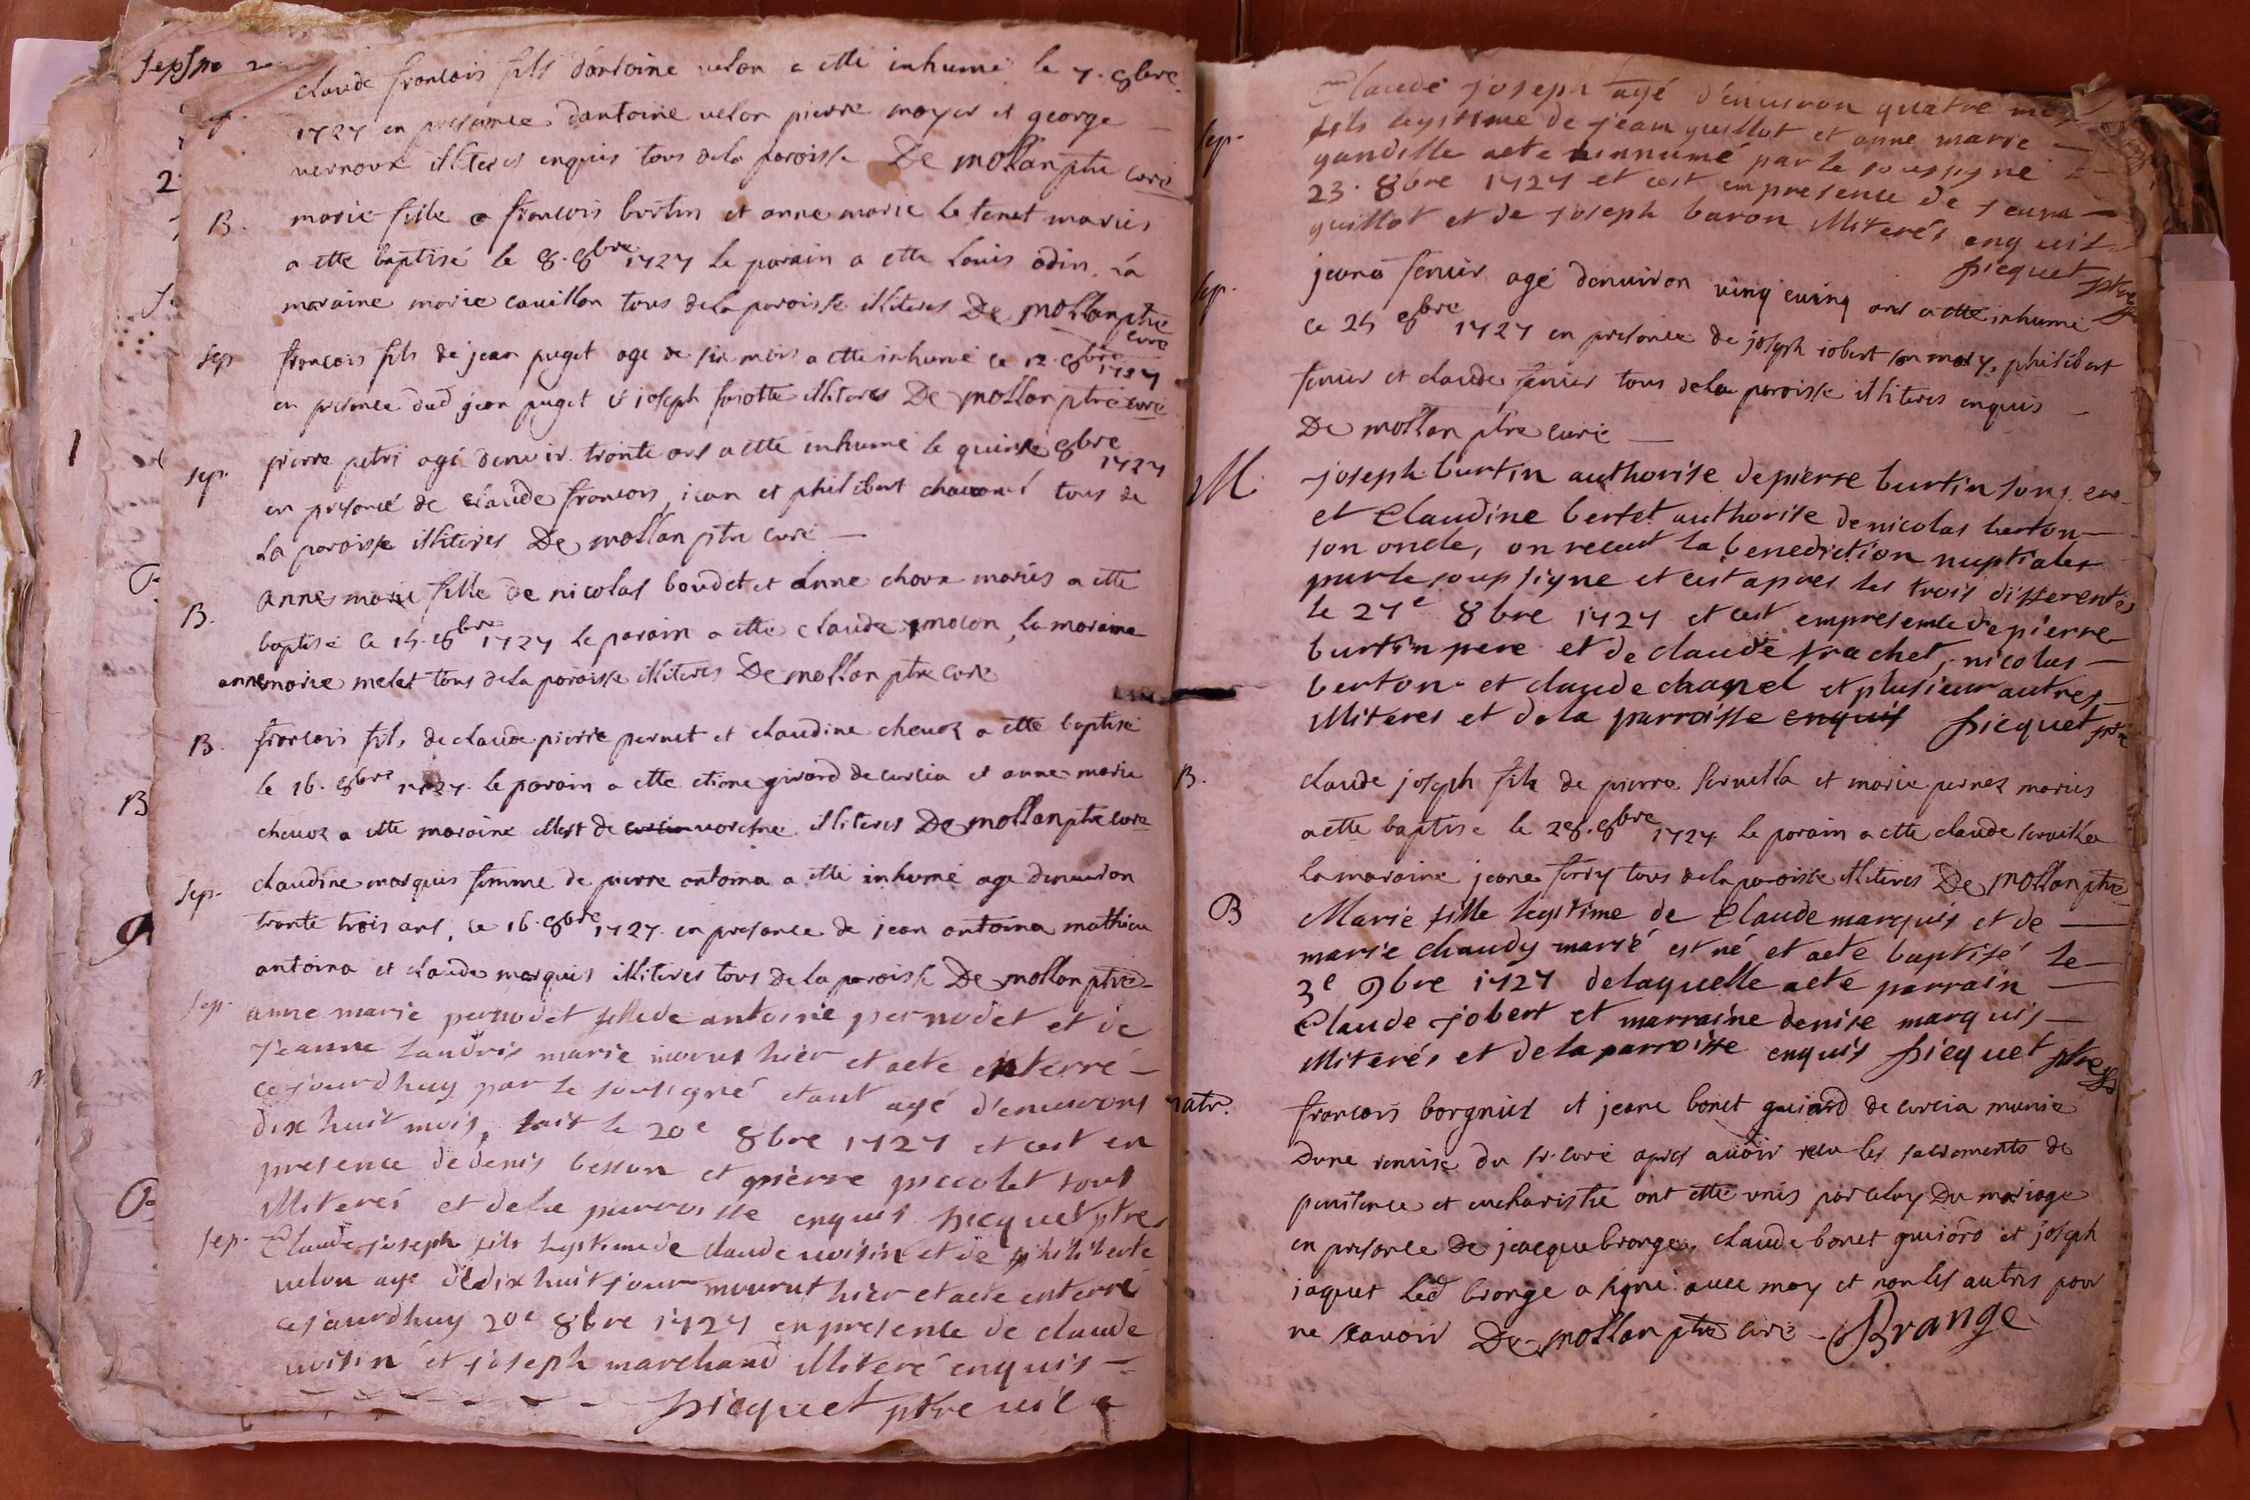 claude francois fils dantoine velon a etté inhumé le 7. 8bre
1727 en presance dantoine velon pierre moyer et george
vernoux illiteres enquis tous de la paroisse De mollan ptre curé
B. marie fille a francois burtin et anne marie le tenet mariés
a etté baptisé le 8. 8bre 1727 le parain a etté Louis odin. la
maraine marie cauillon tous de la paroisse illiteres De mollan ptre
curé
sep francois fils de jean puget age de six mois a etté inhumé ce 12. 8bre 1727
en presance dud jean puget & joseph illiteres De mollan ptre curé
sep. pierre petri agé denvir. trante ans a etté inhumé le quinse 8bre
1727
en presance de claude francois, jean et philibert tous de
La paroisse illiteres De mollan ptre curé
B. anne marie fille de nicolas boudet et anne choux mariés a etté
baptisé ce 15. 8bre 1727 le parain a etté claude, la maraine
anne marie melet tous de la paroisse illiteres De mollan ptre curé
B. francois fils de claude pierre pernet et claudine cheuoz a etté baptisé
le 16. 8bre 1727. le parain a etté etiene girard de curcia et anne marie
cheuoz a etté maraine de illiteres De mollan ptre curé
Sep. claudine marquis femme de pierre antoina a etté inhumé age denuiron
trante trois ans, ce 16. 8bre 1727. en presance de jean antoina mathieu
antoina et claude marquis illiteres tous de la paroisse De mollan ptre
sep. anne marie pernodet fille de antoine pernodet et de
Jeanne Landris marie mourut hier et aete enterré
cejourdhuy par le sousigné etant agé d'enuirons
dix huit mois, fait le 20e 8bre 1727 et cest en
presence de denis besson et pierre piccolet tous
illiterés et de la parroisse enquis picquet ptre
sep. Claude joseph fils legitime de claude uoisin et de philiberte
uelon age de dix huit jour mourut hier et aete enterré
cejaurdhuy 20e 8bre 1727 en presence de claude
uoisin et joseph marchand illiteré enquis
picquet ptre uic
sep. Claude joseph agé d'enuiron quatre mois
fils legitime de jean guillot et anne marie
gandille aete innumé par le soussigne
23. 8bre 1727 et cest en presence de jean
guillot et de joseph baron illiterés enquis
picquet ptre
sep. jeane feruir agé denuiron uinq cuinq ans a etté inhumé
ce 25 8bre 1727 en presance de joseph iobert son mary, philibert
et claude tous de la paroisse illiteres enquis
De mollan ptre curé
M joseph burtin authorise de pierre burtin
et Claudine bertet authorise de nicolas berton
son oncle, on receut la benediction nuptiales
par le soupsigne et cest apres les trois differentes
le 27e 8bre 1727 et cest empresence de pierre
burtin pere et de claude trachet, nicolas
berton et claude chapel et plusieur autres
illiteres et de la parroisse enquis picquet ptre
B. claude joseph fils de pierre seruilla et marie pernez mariés
a etté baptisé le 28. 8bre 1727 le parain a etté claude seruilla
la maraine jeane ferry tous de la paroisse illiteres De mollan ptre
B Marie fille legitime de Claude marquis et de
marie chaudy marié est né et aete baptisé le
3e 9bre 1727 de laquelle aete parrain
Claude jobert et marraine denise marquis
illiterés et de la parroisse enquis picquet ptre
matr. francois borgniet et jeane bonet guiard de curcia munie
dune remise du sr. curé apres auoir receu les sacrements de
penitence et eucharistie ont etté unis par celuy du mariage
en presance de jacque brange, claude bonet guiard et joseph
jaquet led brange a signé auec moy et non les autres pour
ne scauoir De mollan ptre curé Brange